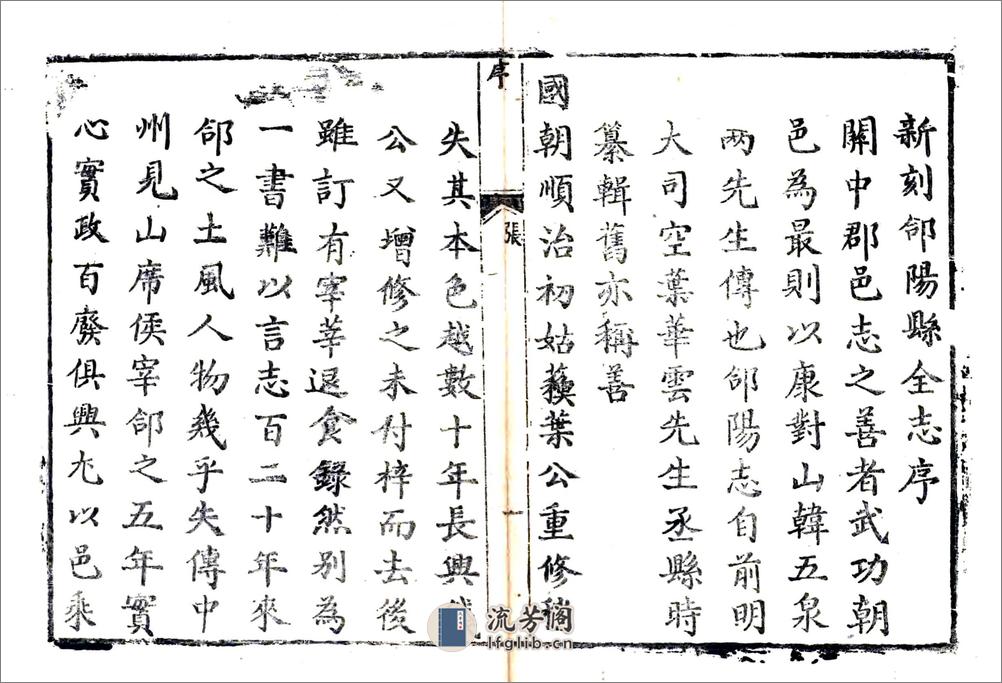 新刻郃陽縣全志序
關中郡邑志之善者武功朝
邑為最則以康對山韓五泉
兩先生傳也郃陽志自前明
大司空葉華雲先生丞縣時
纂輯舊亦稱善
國朝順治初姑蘓葉公重修稍
序
張
一
失其本色越數十年長興
公又增修之未付梓而去後
雖訂有宰莘退食錄然別為
一書難以言志百二十年來
郃之土風人物幾乎失傳中
州見山席侯宰郃之五年實
心實政百廢俱興尤以邑乘
流芳閣
lfglib.cn